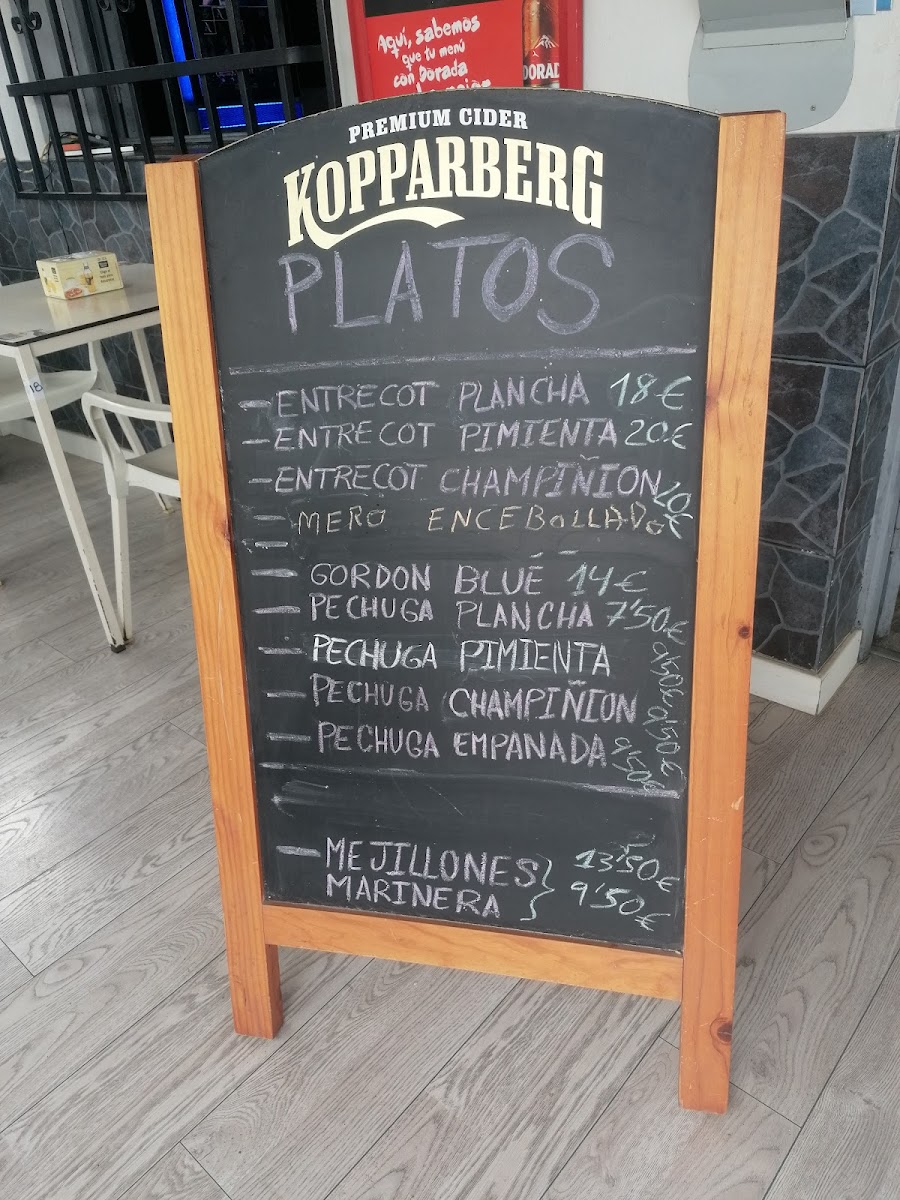 Aquí, sabemos
que tu menú
con Dorada
DORAD
PREMIUM CIDER
KOPPARBERG
PLATOS
- ENTRECOT PLANCHA 18€
- ENTRECOT PIMIENTA 20€
- ENTRECOT CHAMPIÑION 20€
- MERO ENCEBOLLADO
-
- GORDON BLUÉ 14€
- PECHUGA PLANCHA 7'50€
- PECHUGA PIMIENTA 9'50€
- PECHUGA CHAMPIÑION 9'50€
- PECHUGA EMPANADA 9'50€
- MEJILLONES } 13'50€
MARINERA 9'50€
18